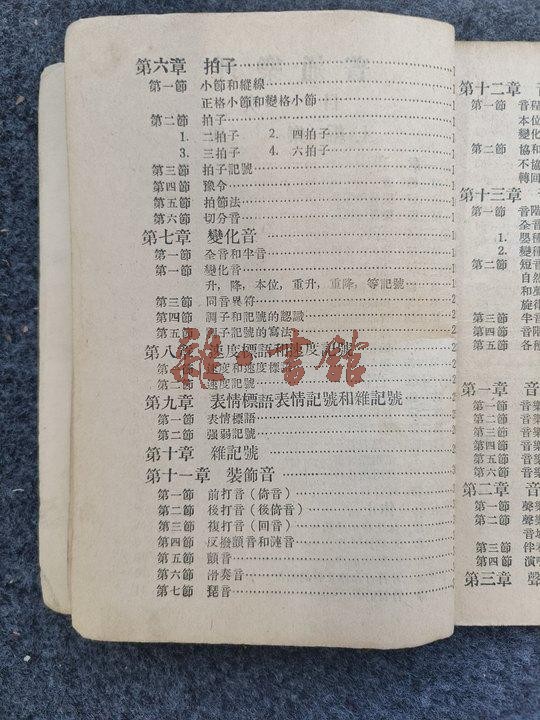 第六章 拍子
第一節 小節和縱線
正格小節和變格小節
第二節 拍子
1. 二拍子 2. 四拍子
3. 三拍子 4. 六拍子
第三節 拍子記號
第四節 豫令
第五節 拍節法
第六節 切分音
第七章 變化音
第一節 全音和半音
第一節 變化音
升,降,本位,重升,重降,等記號
第三節 同音異符
第四節 調子和記號的認識
第五節 調子記號的寫法
第八章 速度標語和速度記號
第一節 速度和速度標語
第二節 速度記號
第九章 表情標語表情記號和雜記號
第一節 表情標語
第二節 强弱記號
第十章 雜記號
第十一章 裝飾音
第一節 前打音(倚音)
第二節 後打音(後倚音)
第三節 複打音(回音)
第四節 反撥顫音和漣音
第五節 顫音
第六節 滑奏音
第七節 琵音
書館
第十二章 音
第一節 音程
本位
變化
第二節 協和
不協
轉回
第十三章
第一節 音階
全音
1.
2. 變種
第二節 短音
自然
和
旋律
第三節 半音
第四節 音階
第五節 各種
第一章 音
第一節 音樂
第二節 音樂
第三節 音樂
第四節 音樂
第五節 音樂
第六節 音樂
第二章 音
第一節 聲樂
第二節 聲樂
音域
第三節 伴
第四節 演
第三章 聲